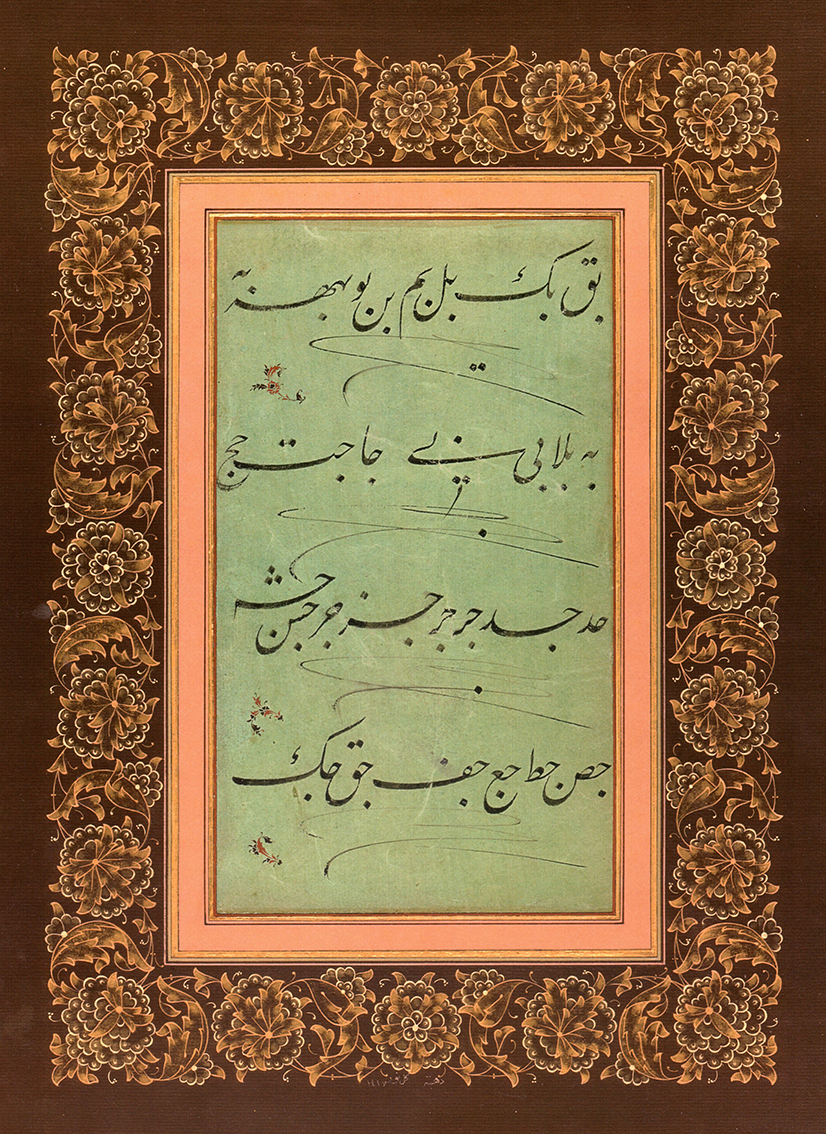 بق بک بل بم بن بو به
به بلا بی بے جا جت حج
حد جد جر جز جر جس
جص حط جع جف جق جک